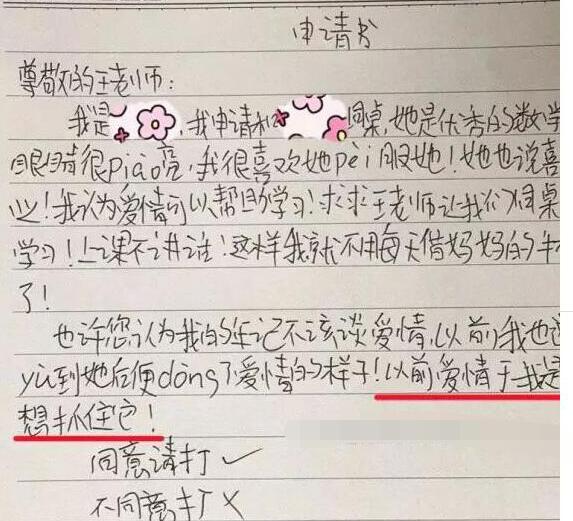 申请书
尊敬的王老师：
我是，我申请和同桌，她是优秀的数学
眼睛很piào亮，我很喜欢她pèi服她！她也说喜
业！我认为爱情可以帮助学习！求求王老师让我们同桌
学习！上课不讲话！这样我就不用每天借妈妈的手
了！
也许您认为我的年记不该谈爱情，以前我也这
yù到她后便dǒng了爱情的样子！以前爱情于我是
想抓住它！
同意请打✓
不同意打×